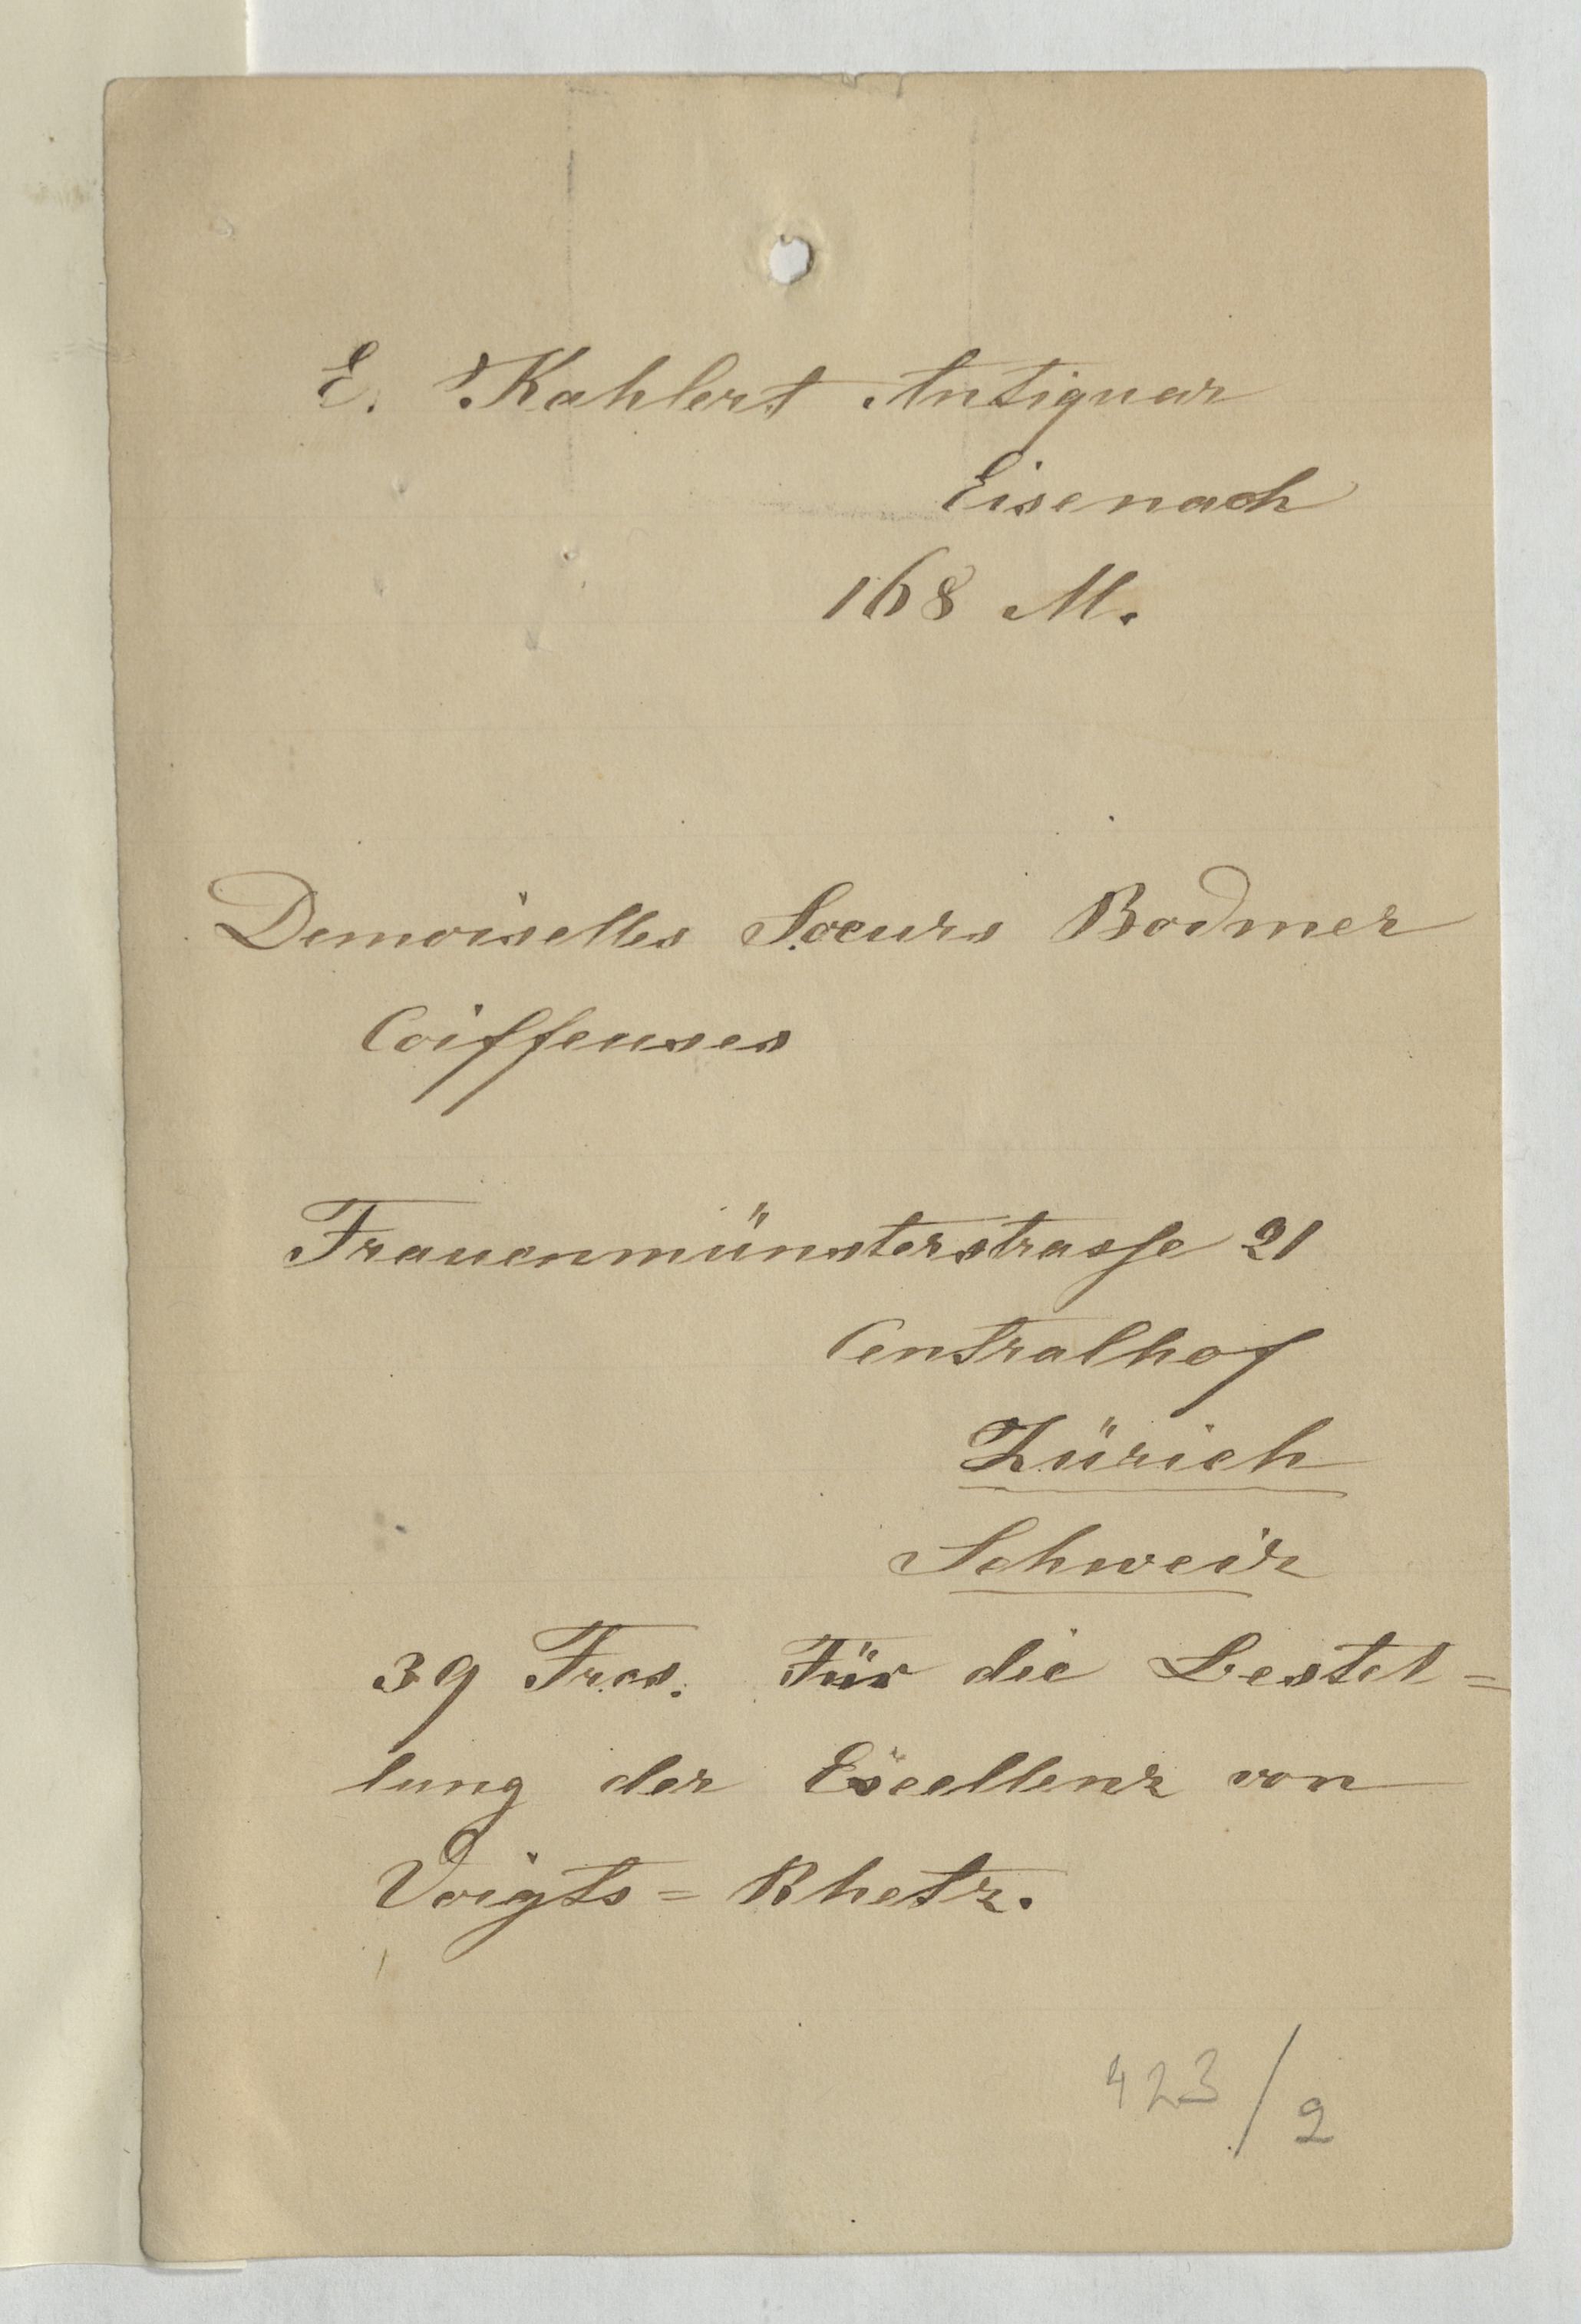 E. Kahlert Antiquar
Eisenach
168 M.
Demoiselles Soeurs Bodmer
Coiffeuses
Frauenmünsterstrasse 21
Centralhof
Zürich
Schweiz
39 Frcs. Für die Bestel=
lung der Excellenz von
Voigts=Rhetz.
423/2